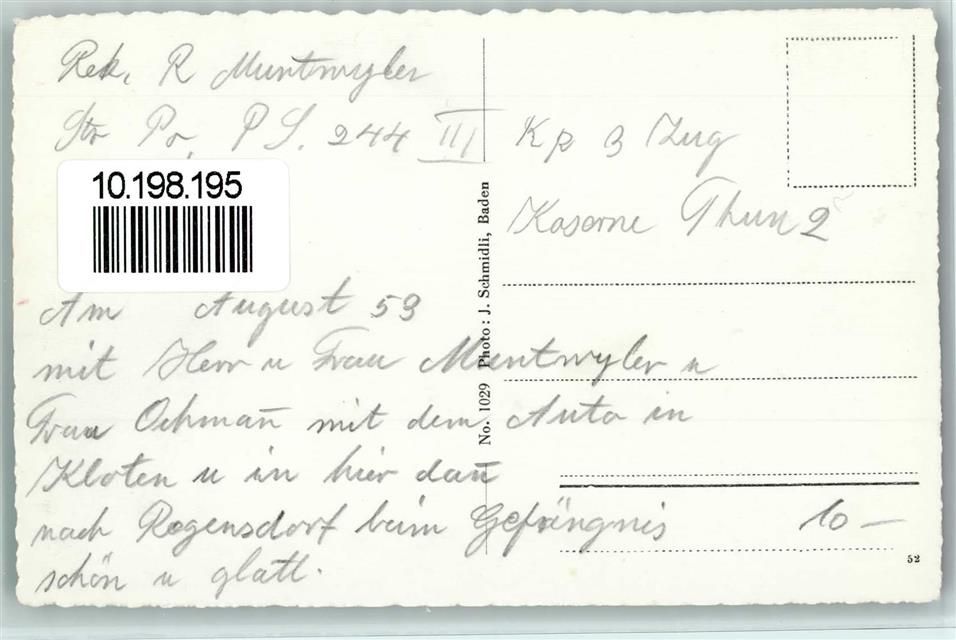 Rek. R Muntwyler
Str Pz. P S. 244 III
Kp 3 Zug
Kaserne Thun 2
10.198.195
No. 1029 Photo: J. Schmidli, Baden
Am August 53
mit Herr u Frau Muntwyler u
Frau Ochman̄ mit dem Auto in
Kloten u in hier dan̄
nach Regensdorf beim Gefängnis
schön u glatt.
10 —
52